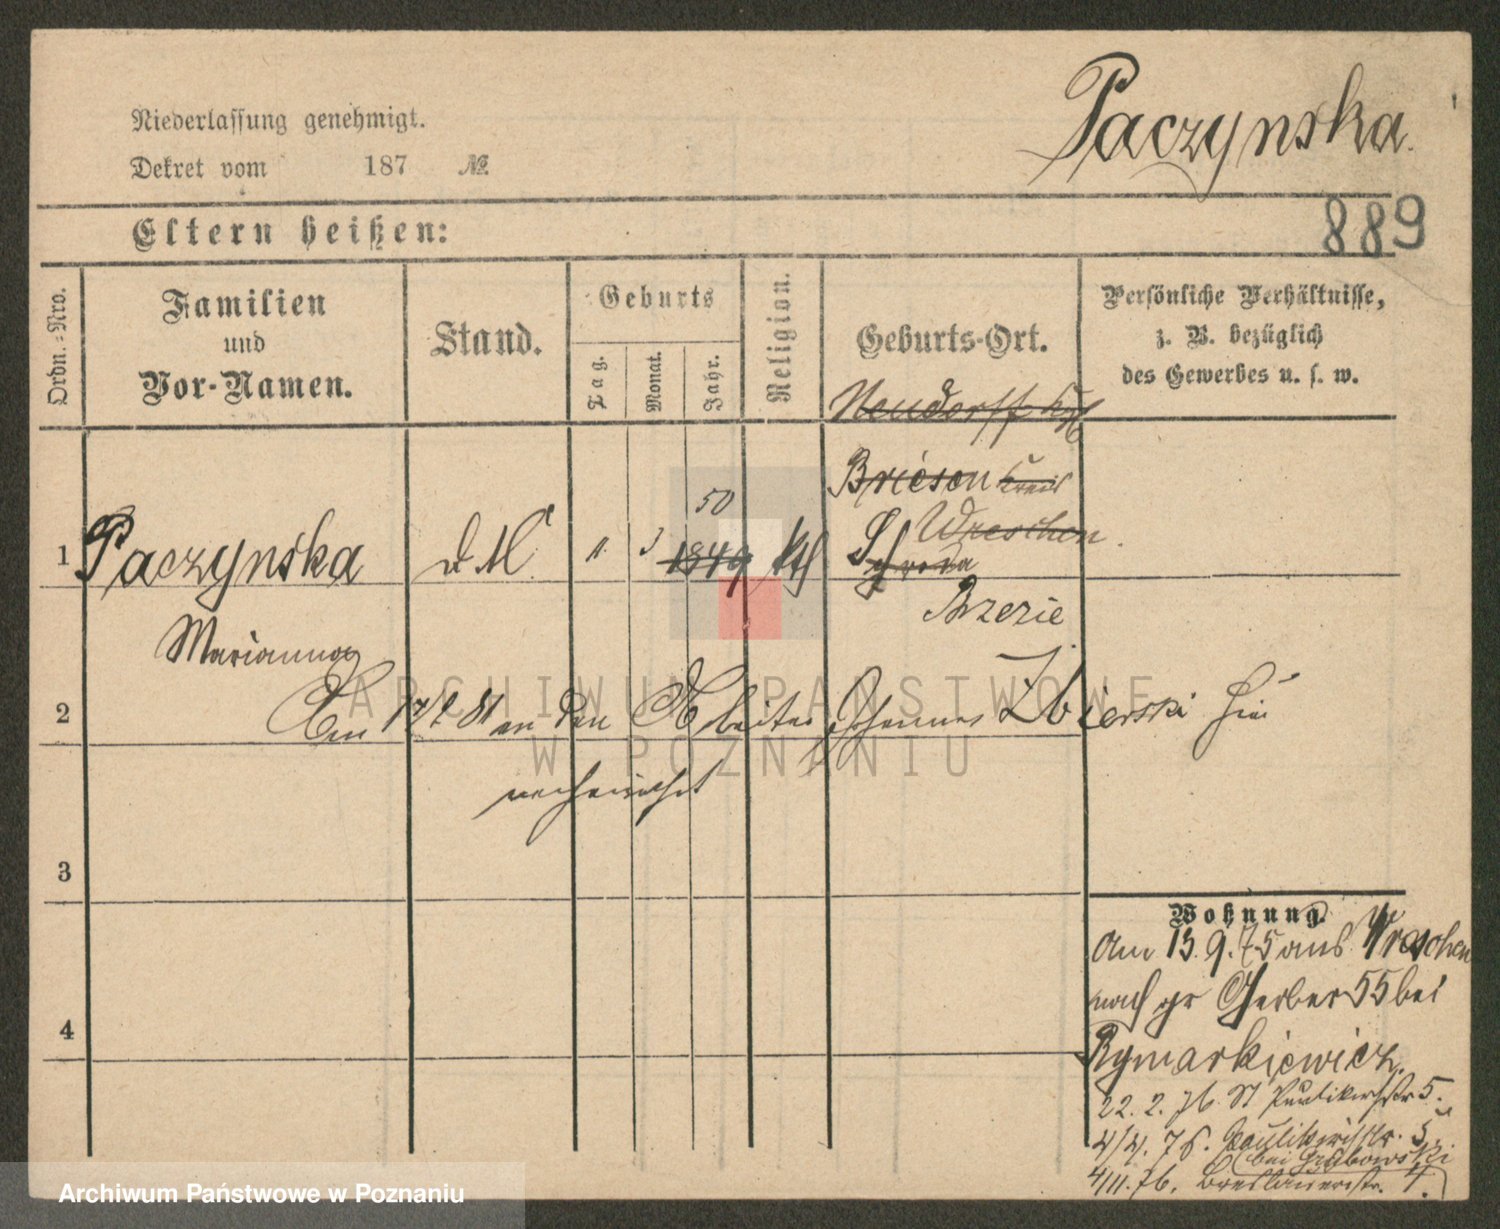 Paczynska.
Niederlassung genehmigt.
Dekret vom 187 №
889
Eltern heißen:
Ordn.-Nro.
Familien
und
Vor-Namen.
Stand.
Geburts
Tag.
Monat.
Jahr.
Religion.
Geburts-Ort.
Persönliche Verhältnisse,
z. B. bezüglich
des Gewerbes u. s. w.
Neudorff
Briesen Kreis
Wreschen
50
1 Paczynska d. M. 11. 3 1849 kth Schroda
Brzezie
Marianna
2 Am 17/2 81 an den Arbeiter Johannes Zbierski hier
verheirathet
3
4
Wohnung.
Am 13. 9. 75 aus Wreschen
nach gr Gerber 55 bei
Rymarkiewicz.
22. 2. 76. St Paulikirchstr 5.
4/4. 76. Paulikirchstr. 5.
bei Grabowski
4/11. 76. Breslauerstr. 4.
ARCHIWUM PAŃSTWOWE
W POZNANIU
Archiwum Państwowe w Poznaniu